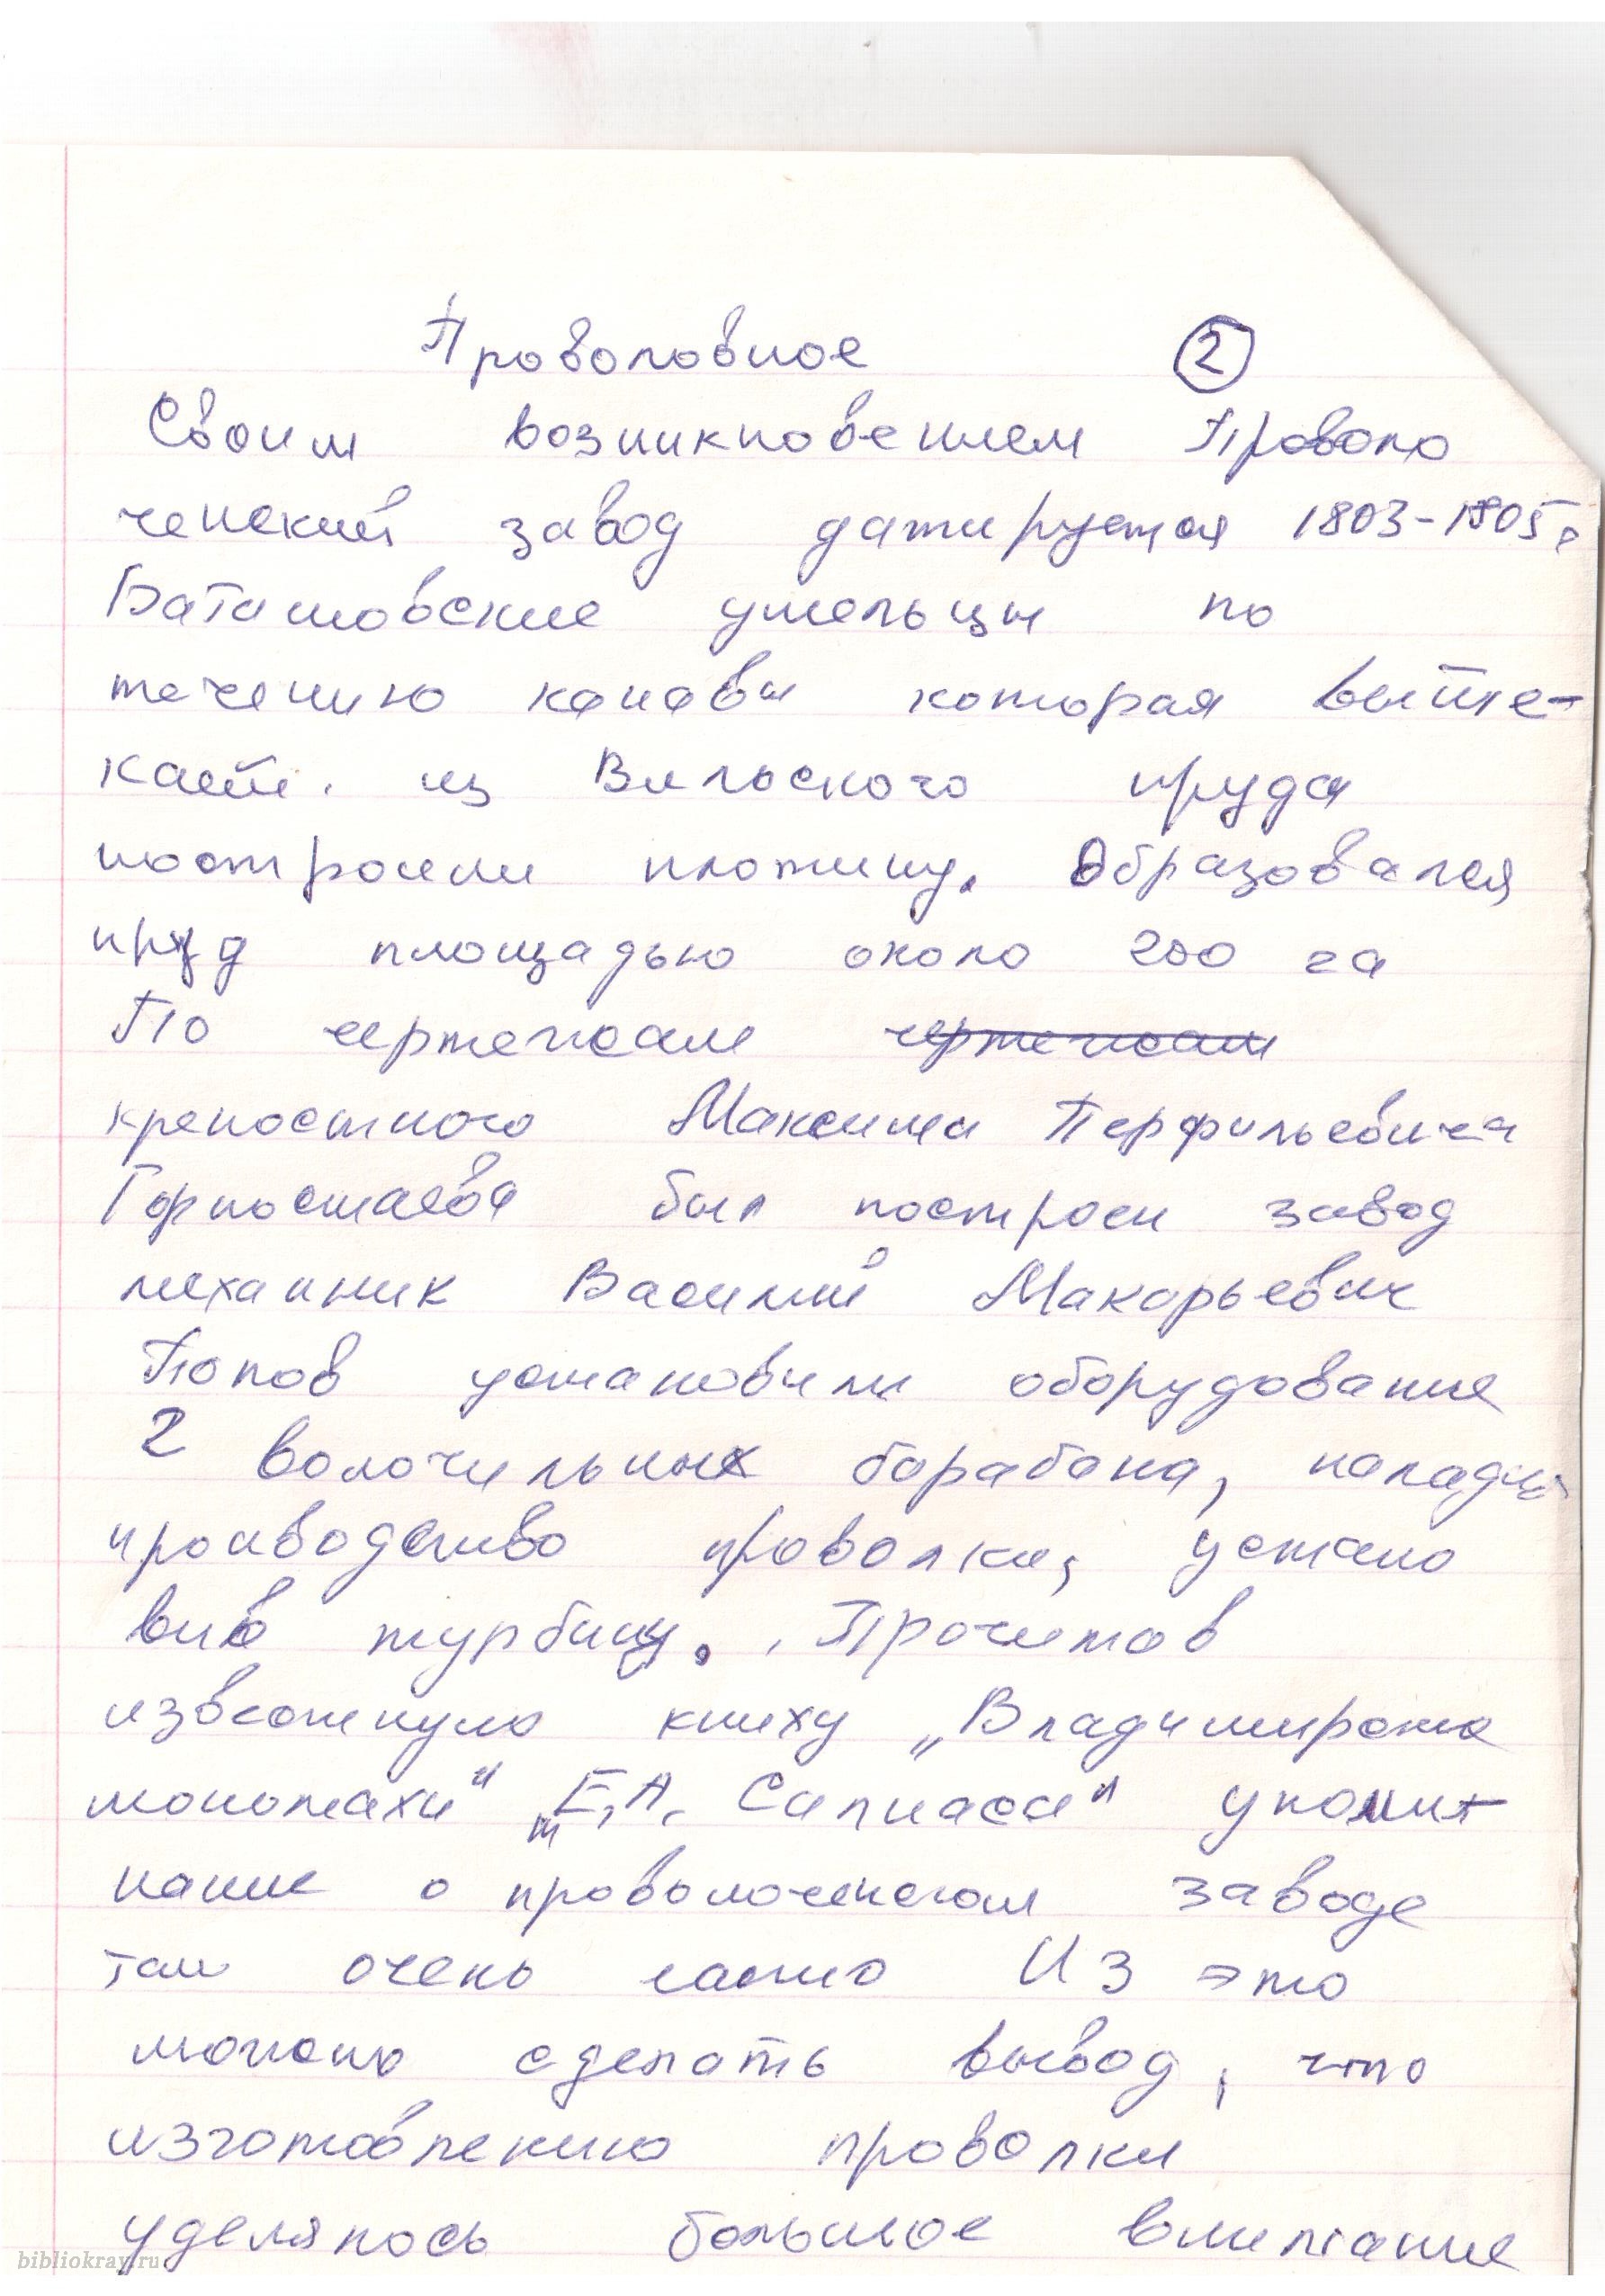 Проволовное ②
Своим возникновением Провопо
ченский завод датируется 1803-1805г
Баташовские умельцы по
течению канавы которая выте-
кает. из Вильского пруда
построили плотину. Образовался
пруд площадью около 200 га
По чертежам чертежам
крепостного Максима Перфильевича
Горностаева был построен завод
механник Василий Макарьевич
Попов установили оборудование
2 волочильных барабана, налади
проиводство проволки, устано
вив турбину. Прочитав
известную книху „Владимирские
мономахи" „Е.А. Салиаса" упоми-
нание о проволоченском заводе
там очень часто Из это
можено сделать вывод, что
изготовлению проволки
уделялось большое внимание
bibliokray.ru